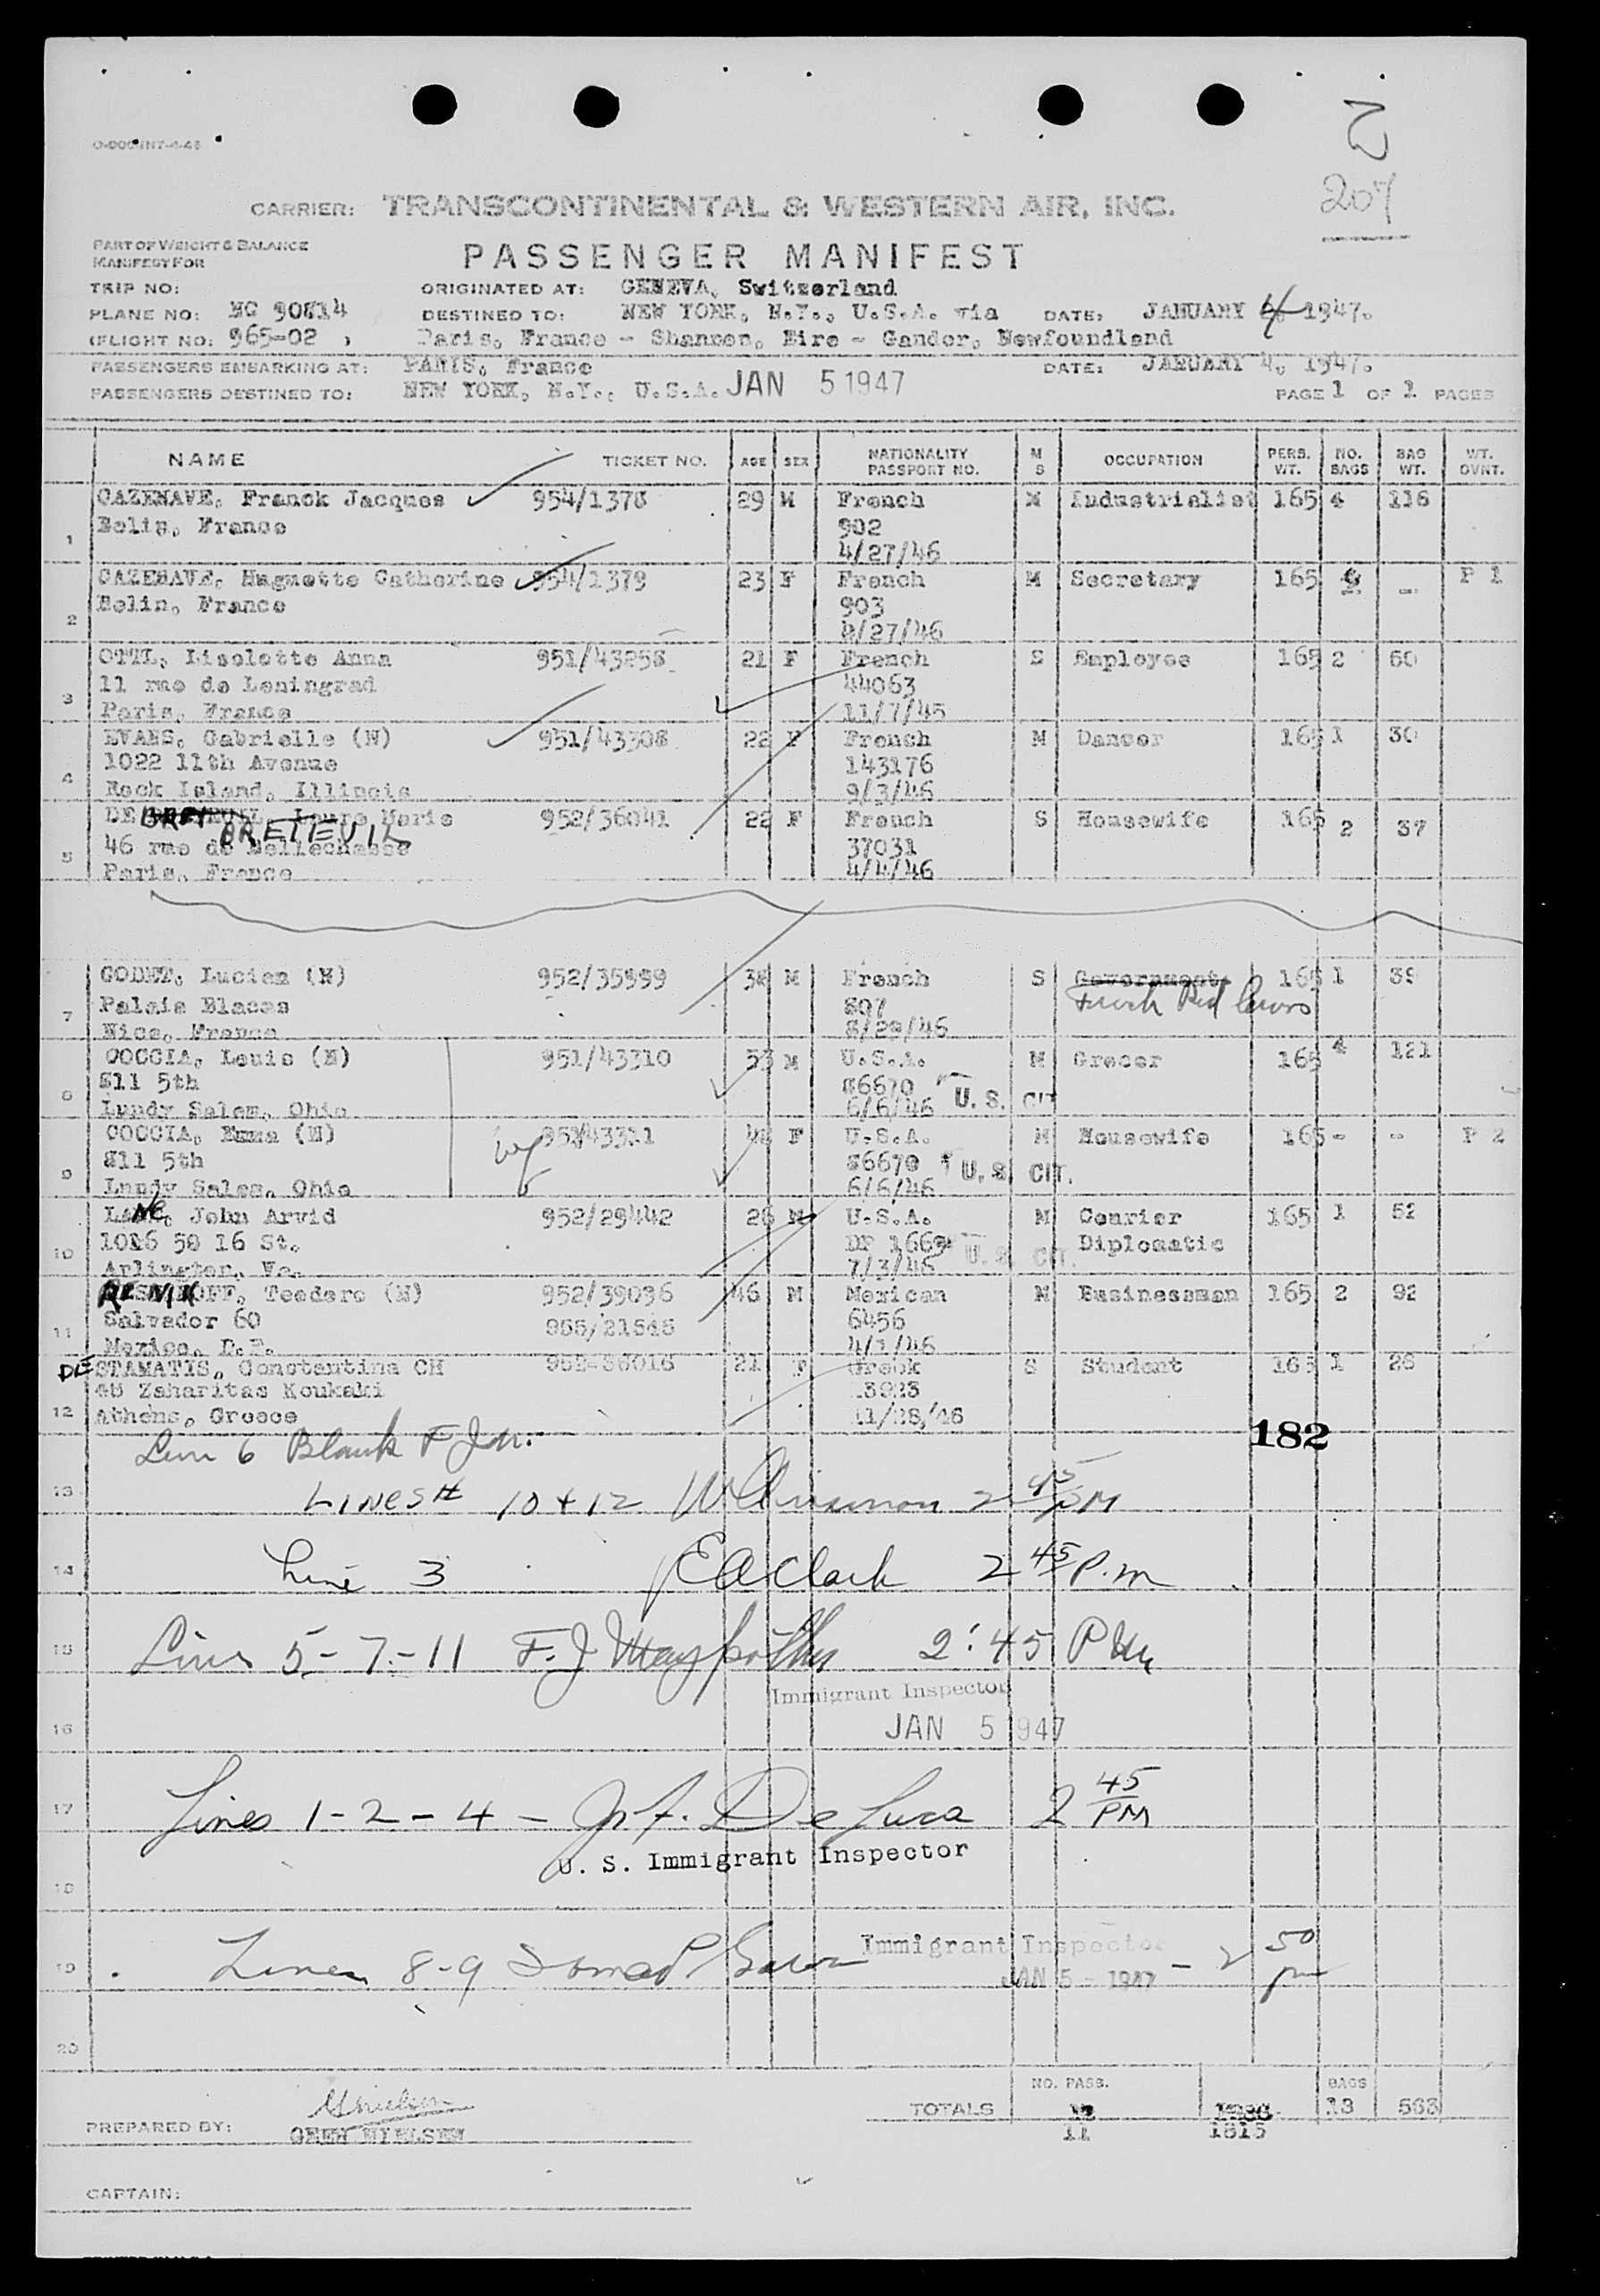 O-000 INT-4-46
207
CARRIER: TRANSCONTINENTAL & WESTERN AIR, INC.
PART OF WEIGHT & BALANCE
MANIFEST FOR
PASSENGER MANIFEST
TRIP NO: ORIGINATED AT: GENEVA, Switzerland
PLANE NO: NC 90814 DESTINED TO: NEW YORK, N.Y., U.S.A. via DATE: JANUARY 4 1947.
(FLIGHT NO: 965-02 ) Paris, France - Shannon, Eire - Gander, Newfoundland
PASSENGERS EMBARKING AT: PARIS, France DATE: JANUARY 4, 1947.
PASSENGERS DESTINED TO: NEW YORK, N.Y., U.S.A. JAN 5 1947 PAGE 1 OF 1 PAGES
NAME TICKET NO. AGE SEX NATIONALITY PASSPORT NO. M S OCCUPATION PERS. WT. NO. BAGS BAG WT. WT. OVNT.
1 CAZENAVE, Franck Jacques 954/1378 29 M French M Industrialist 165 4 116
Belis, France 902
4/27/46
2 CAZENAVE, Huguette Catherine 954/1379 23 F French M Secretary 165 - P 1
Belin, France 903
4/27/46
3 OTTL, Liselotte Anna 951/43258 21 F French S Employee 165 2 60
11 rue de Leningrad 44063
Paris, France 11/7/45
4 EVANS, Gabrielle (N) 951/43308 22 F French M Dancer 165 1 30
1022 11th Avenue 143176
Rock Island, Illinois 9/3/46
5 DE BRETEUIL Laure Marie 952/36041 22 F French S Housewife 165 2 37
46 rue de Bellechasse 37031
Paris, France 4/4/46
7 GODET, Lucien (N) 952/35999 38 M French S Government 165 1 39
Palais Blacas 807 French Red Cross
Nice, France 8/29/46
8 COCCIA, Louis (N) 951/43310 53 M U.S.A. M Grocer 165 4 121
811 5th 86670 U.S. CIT
Lundy Salem, Ohio 6/6/46
9 COCCIA, Emma (N) 951/43311 48 F U.S.A. M Housewife 165 - - P 2
811 5th 86670 U.S. CIT.
Lundy Salem, Ohio 6/6/46
10 LANE, John Arvid 952/29442 26 M U.S.A. M Courier 165 1 52
1016 50 16 St. DP 1669 U.S. CIT. Diplomatic
Arlington, Va. 7/3/46
11 RESNIKOFF, Teodoro (N) 952/39036 46 M Mexican M Businessman 165 2 92
Salvador 60 955/21545 6456
Mexico, D.F. 4/1/46
12 DE STAMATIS, Constantina CH 952-36016 21 F Greek S Student 165 1 26
45 Zaharitas Koukaki 13923
Athens, Greece 11/28/46
182
Line 6 Blank F J M.
13 LINES # 10 + 12 2 45 PM
14 Line 3 E A Clark 2 45 P.m
15 Lines 5-7-11 F. J. 2:45 PM
Immigrant Inspector
16 JAN 5 1947
17 Lines 1-2-4- De Luca 2 45 PM
U. S. Immigrant Inspector
18
19 Lines 8-9 Immigrant Inspector
JAN 5 - 1947 - 2 50 pm
20
TOTALS NO. PASS. 12 11 1815 BAGS 18 563
PREPARED BY: NIELSEN
CAPTAIN: